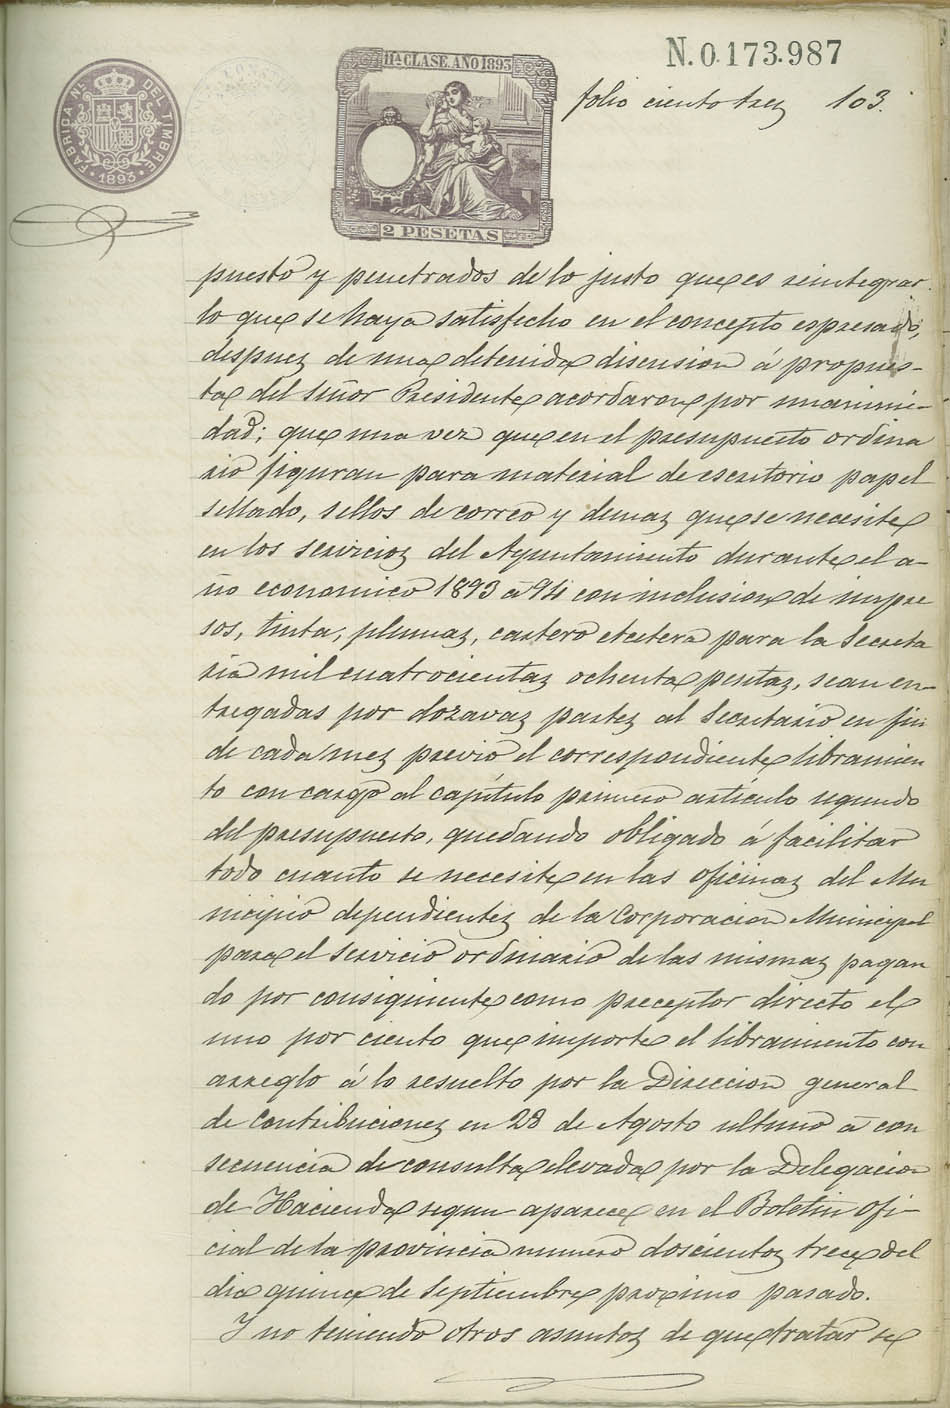 N.0.173.987
11ª CLASE. AÑO 1893
FABRICA Nal. DEL TIMBRE
1893
folio ciento trez 103.
2 PESETAS
puesto y penetrados de lo justo que es reintegrar
lo que se haya satisfecho en el concepto espresado,
despuez de una detenida discusion á propues-
ta del Señor Presidente acordaron por unanimi-
dad; que una vez que en el presupuesto ordina
rio figuran para material de escritorio papel
sellado, sellos de correo y demaz que se necesite
en los servicioz del Ayuntamiento durante el a-
ño economico 1893 á 94 con inclusion de impre
sos, tinta, plumaz, cartero etcetera para la Secreta
ria mil cuatrocientaz ochenta pesetaz, sean en-
tregadas por dozavaz partez al Secretario en fin
de cada mez previo el correspondiente libramien
to con cargo al capítulo primero artículo segundo
del presupuesto, quedando obligado á facilitar
todo cuanto se necesite en las oficinaz del Mu
nicipio dependientez de la Corporacion Municipal
para el servicio ordinario de las mismaz pagan
do por consiguiente como preceptor directo el
uno por ciento que importe el libramiento con
arreglo á lo resuelto por la Direccion general
de Contribucionez en 28 de Agosto ultimo á con
secuencia de consulta elevada por la Delegacion
de Hacienda segun aparece en el Boletin ofi-
cial de la provincia numero doscientoz trece del
dia quince de Septiembre proximo pasado.
Y no teniendo otros asuntoz de que tratar se